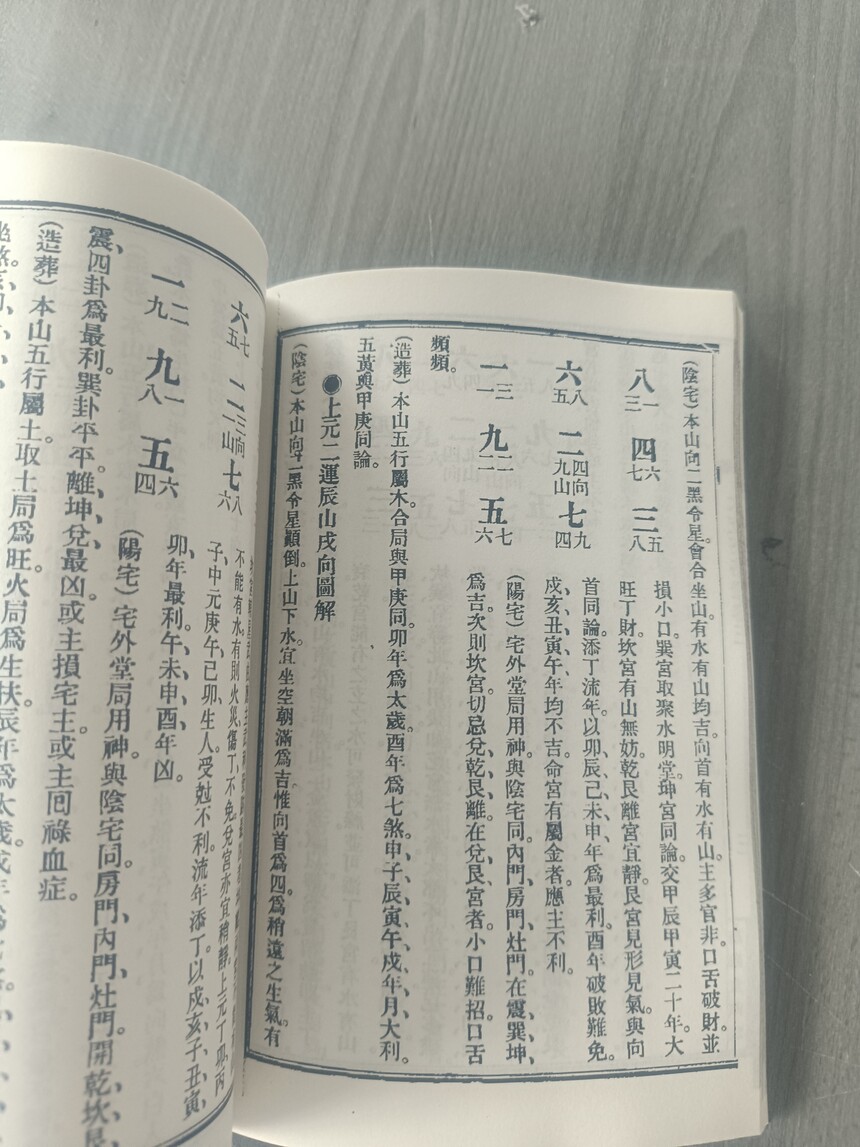 (陰宅)本山向二黑令星。會合坐山。有水有山均吉。向首有水有山。主多官非。口舌破財。並
損小口。巽宮取聚水明堂。坤宮同論。交甲辰甲寅二十年。大
旺丁財。坎宮有山無妨。乾艮離宮宜靜。艮宮見形見氣。與向
首同論。添丁流年。以卯、辰、己、未、申、年為最利。酉年破敗難免。
戍、亥、丑、寅、午、年均不吉。命宮有屬金者。應主不利。
(陽宅)宅外堂局用神。與陰宅同。內門、房門、灶門。在震、巽、坤、
為吉。次則坎宮。切忌兌、乾、艮、離。在兌、艮宮者。小口難招。口舌
頻頻。
八 一三 四 六七 三 五八
六 八五 二 四向九山 七 九四
一 三一 九 二二 五 七六
(造葬)本山五行屬木。合局與甲庚同。卯年為太歲。酉年為七煞。申、子、辰、寅、午、戍、年月大利。
五黃與甲庚同論。
●上元二運辰山戌向圖解
(陰宅)本山向二黑令星顛倒。上山下水。宜坐空朝滿為吉。惟向首為四。為稍遠之生氣。有
六 七五 二 三向二山 七 八六
一 二九 九 一八 五 六四
不能有水。有則火災傷丁。不免。兌宮亦宜稍靜。上元丁卯、丙
子、中元庚午、己卯、生人。受尅不利。流年添丁。以戍、亥、子、丑、寅、
卯、年最利。午、未、申、酉、年凶。
(陽宅)宅外堂局用神。與陰宅同。房門、內門、灶門。開乾、坎、艮、
震、四卦為最利。巽卦平平。離、坤、兌、最凶。或主損宅主。或主回祿血症。
(造葬)本山五行屬土。取土局為旺。火局為生扶。辰年為太歲。戍年為